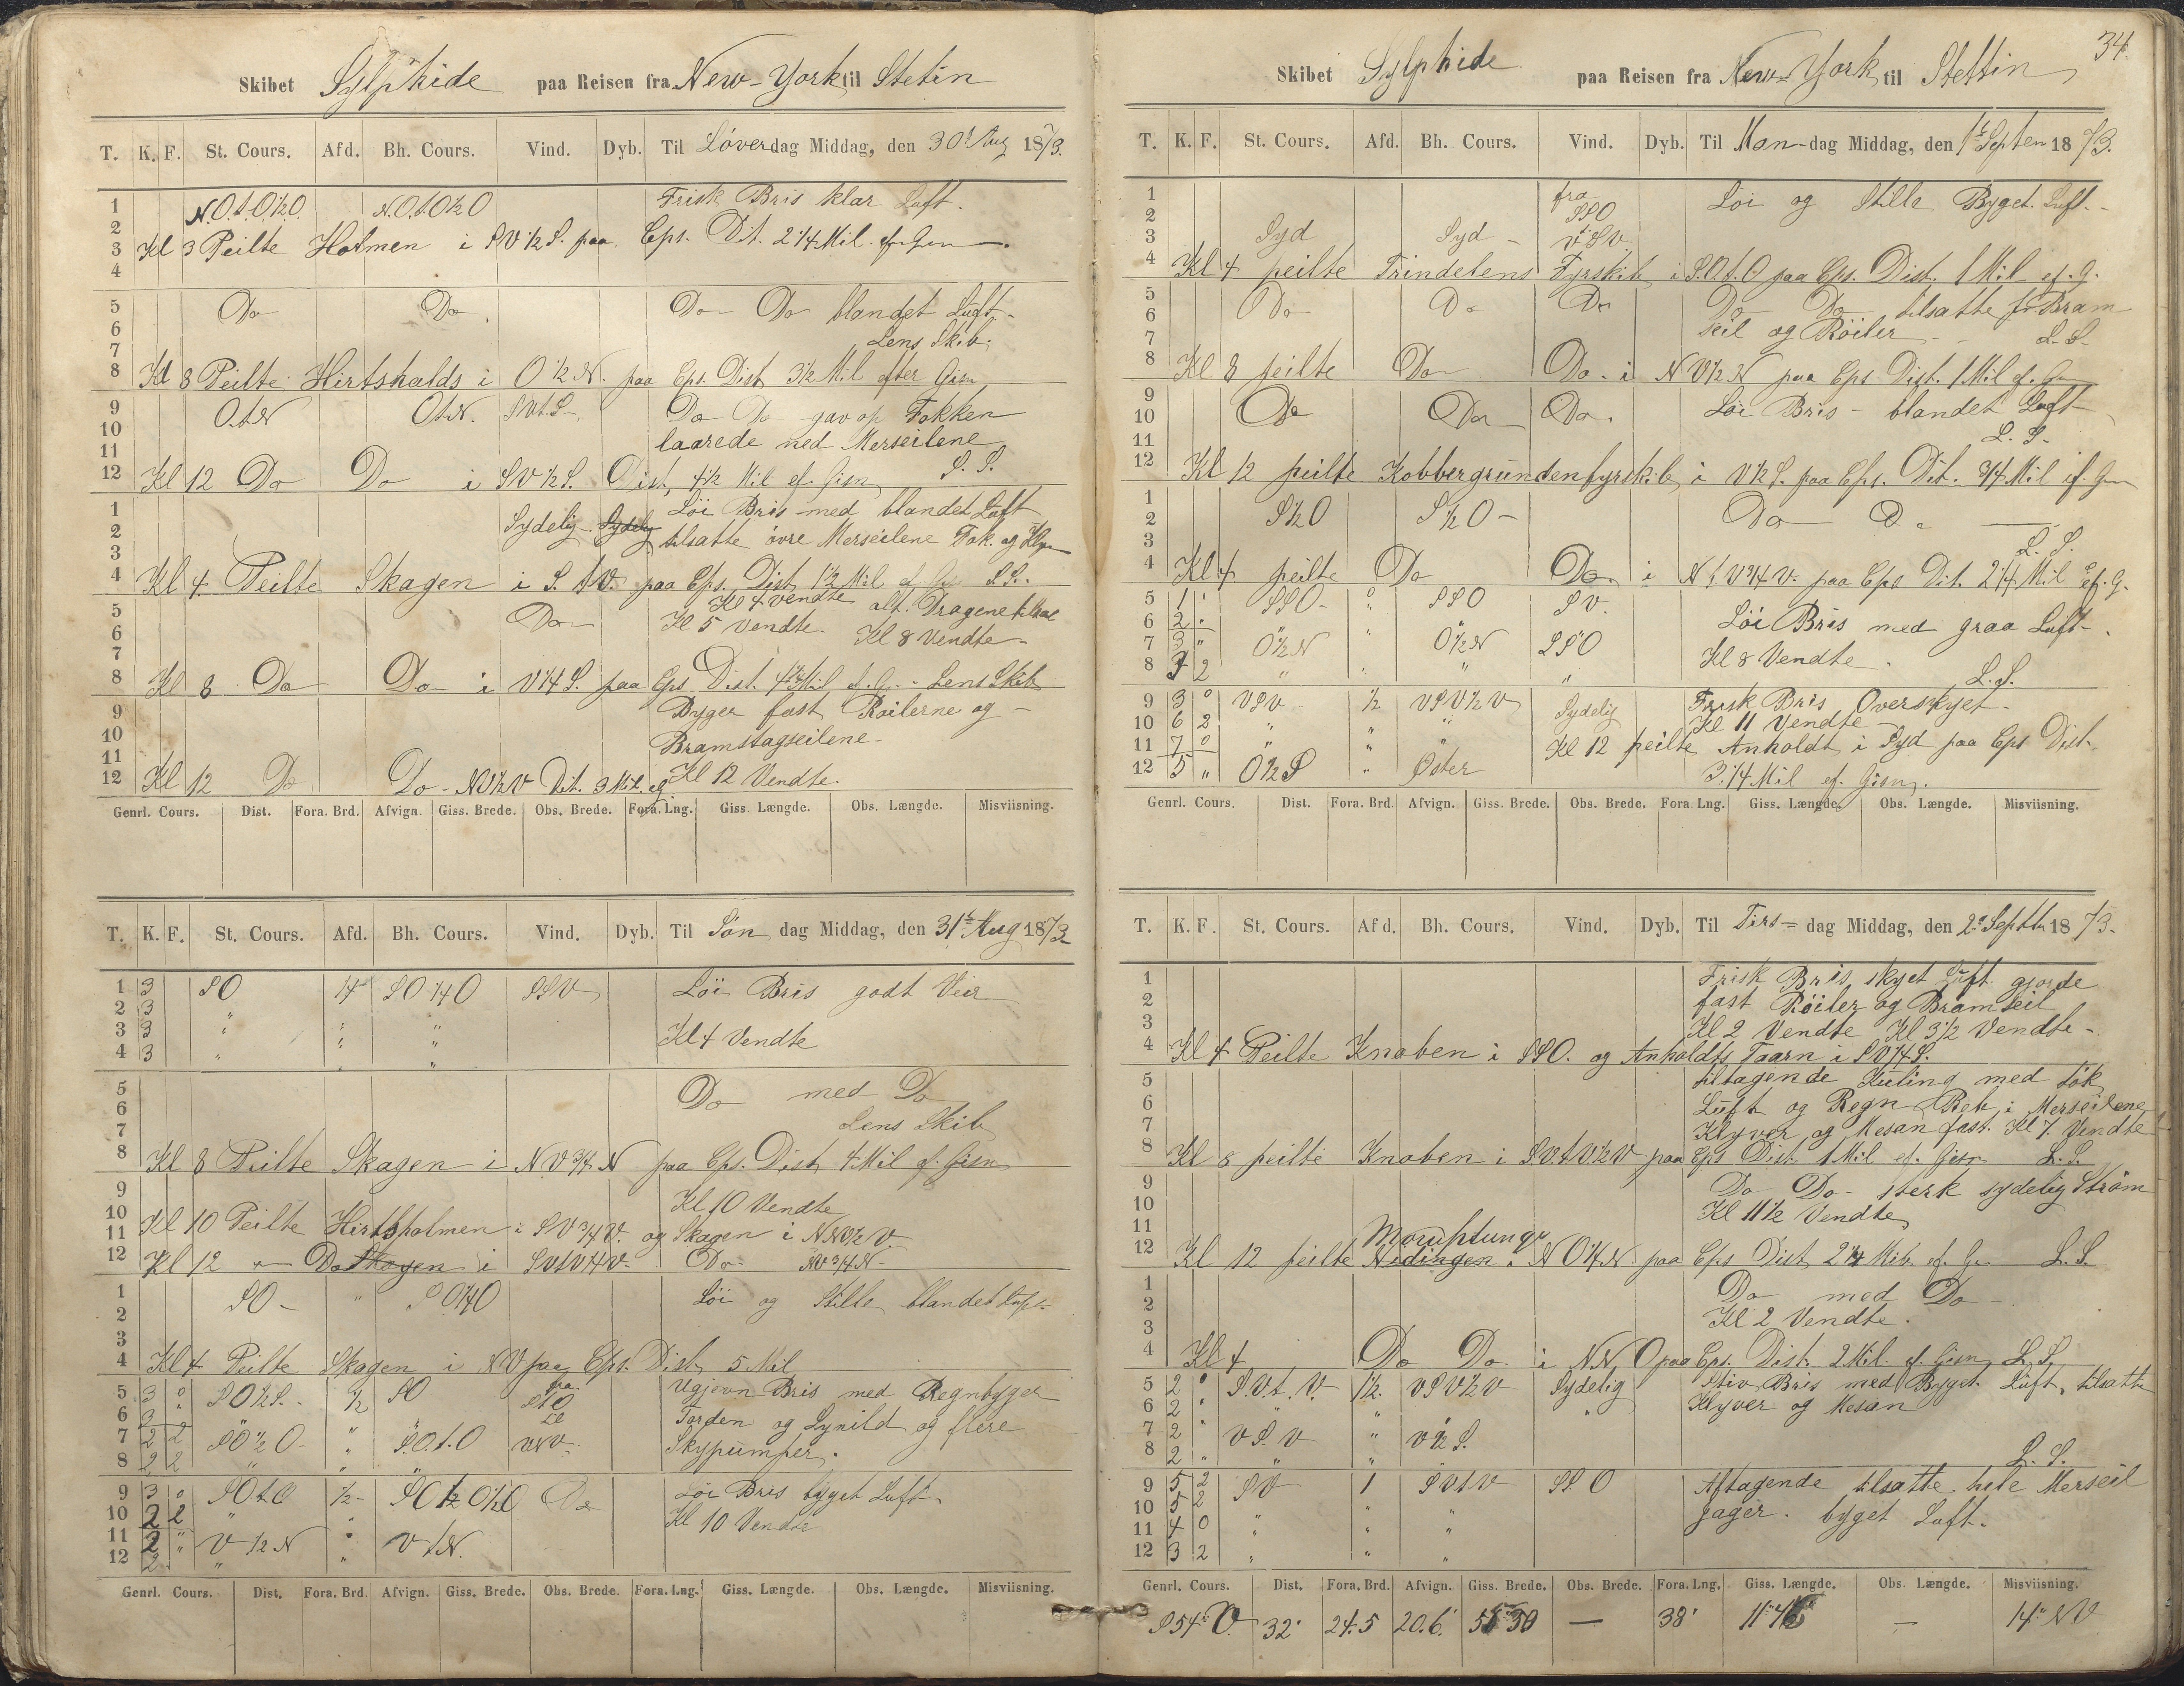 Skibet Sylphide paa Reisen fra New-York til Stetin
T. K. F. St. Cours. Afd. Bh. Cours. Vind. Dyb. Til Löverdag Middag, den 30t Aug 1873.
1 N.O.t.O½O. N.O.t.O½O Frisk Bris klar Luft.
2
3 Kl 3 Peilte Holmen i SV½S. paa Cps. Dit. 2¼ Mil ef. Gisn
4
5 Do Do Do Do blandet Luft.
6
7 Lens Skib.
8 Kl 8 Peilte Hirtshalds i O½N. paa Cps. Dist 3½ Mil efter Gisn
9 O.t.N O.t.N. SVt.S Do Do gav op Fokken
10
11 laarede ned Merseilene
12 Kl 12 Do Do i SV½S. Dist, 4½ Mil ef. Gisn L.S.
1 Löi Bris med blandet Luft
2 Sydelig Sydelig tilsatte övre Merseilene Fok. og
3
4 Kl 4 Peilte Skagen i S.tV. paa Cps. Dist 1½ Mil ef G L.S.
5 Kl 4 vendte alt. Dragene
6 Do Kl 5 Vendte. Kl 8 Vendte
7
8 Kl 8 Do Do i V¼S. paa Cps Dist. Mil ef. G. Lens Skib
9 Byger fast Röilerne og
10 Bramstagseilene
11
12 Kl 12 Do Do NV½V Dit. 3 Mil. ef Kl 12 Vendte.
Genrl. Cours. Dist. Fora. Brd. Afvign. Giss. Brede. Obs. Brede. Fora. Lng. Giss. Længde. Obs. Længde. Misviisning.
T. K. F. St. Cours. Afd. Bh. Cours. Vind. Dyb. Til Sön dag Middag, den 31t Aug 1873
1 3 SO ¼ SO¼O SSV Löi Bris godt Veir
2 3 " " "
3 3 " " " Kl 4 Vendte
4 3 " " "
5 Do med Do
6
7 Lens Skib
8 Kl 8 Peilte Skagen i NV¾N paa Cps. Dist 4 Mil ef. Gisn
9
10 Kl 10 Vendte
11 Kl 10 Peilte Hirtsholmen i SV¾V. og Skagen i NNV½V
12 Kl 12 " Do Skagen i SVtV¼V Do NV¾N
1 SO " SO¼O Löi og Stille blandet Luft
2
3
4 Kl 4 Peilte Skagen i NV paa Cps. Dist 5 Mil
5 3 0 SO½S. ½ SO fra Ugjevn Bris med Regnbyger
6 3 " til Torden og Lynild og flere
7 2 2 SO½O " S.O.t.O VNV Skypumper.
8 2 2 " " "
9 3 0 SOtO ½ Do Löi Bris byget Luft
10 2 2 " " Kl 10 Vendte
11 2 " V½N " VtN.
12 2 " "
Genrl. Cours. Dist. Fora. Brd. Afvign. Giss. Brede. Obs. Brede. Fora. Lng. Giss. Længde. Obs. Længde. Misviisning.
34.
Skibet Sylphide paa Reisen fra New-York til Stettin
T. K. F. St. Cours. Afd. Bh. Cours. Vind. Dyb. Til Man-dag Middag, den 1t Septem 1873.
1 fra Löi og Stille Byget. Luft.
2 SSO
3 Syd Syd VSV
4 Kl 4 peilte Trindelens Fyrskib i S.O.t.O paa Cps. Dist. 1 Mil ef. G.
5
6 Do Do Do Do Do tilsatte for Bram
7 seil og Röiler L.S.
8 Kl 8 peilte Do Do i NV½N paa Cps Dist. 1 Mil ef. G
9
10 Do Do Do. Löi Bris blandet Luft
11 L.S.
12 Kl 12 peilte Kobbergrunden fyrskib i V½S. paa Cps. Dit. ¾ Mil ef. G
1
2 S½O S½O Do Do
3 L.S.
4 Kl 4 peilte Do Do i N t V¾V. paa Cps Dit. 2¼ Mil ef. G.
5 1 " SSO " SSO SV.
6 2 " Löi Bris med graa Luft
7 3 " O½N " O½N SSO
8 3 2 " " " " Kl 8 Vendte L.S.
9 3 0 VSV ½ VSV½V Sydelig Frisk Bris Overskyet
10 6 2 " " " Kl 11 Vendte
11 7 0 " " " Kl 12 peilte Anholdt i Syd paa Cps Dist.
12 5 " O½S " Öster 3¼ Mil ef. Gisn.
Genrl. Cours. Dist. Fora. Brd. Afvign. Giss. Brede. Obs. Brede. Fora. Lng. Giss. Længde. Obs. Længde. Misviisning.
T. K. F. St. Cours. Afd. Bh. Cours. Vind. Dyb. Til Tirs-dag Middag, den 2 Septbr 1873.
1 Frisk Bris skyet Luft gjorde
2 fast Röiler og Bramseil
3 Kl 2 Vendte Kl 3½ Vendte
4 Kl 4 Peilte Knoben i SSO. og Anholdts Taarn i SV¼S.
5 tiltagende Kuling med tök
6 Luft og Regn Reb i Merseilene
7 Klyver og Mesan fast. Kl 7 Vendte
8 Kl 8 peilte Knoben i S.V.t.V½V paa Cps Dist 1 Mil ef. Gisn L.S.
9 Do Do sterk sydelig Ström
10 Kl 11½ Vendte
11
12 Kl 12 peilte Nidingen i NO¼N paa Cps Dist 2¼ Mil. ef. G L.S.
1 Do med Do
2
3 Kl 2 Vendte.
4 Kl 4 Do Do i NNO paa Cps. Dist. 2 Mil. ef. Gisn L.S.
5 2 0 S.V.t.V. 1½ VSV½V Sydelig Stiv Bris med Byget Luft, tilsatte
6 2 " " " " " Klyver og Mesan
7 2 " VSV " V½S.
8 2 " " " " L.S.
9 5 2 SV 1 SVtV SSO Aftagende tilsatte hele Merseil
10 5 2
11 4 0 " " " Jager. byget Luft.
12 3 2 " " "
Genrl. Cours. Dist. Fora. Brd. Afvign. Giss. Brede. Obs. Brede. Fora. Lng. Giss. Længde. Obs. Længde. Misviisning.
S54°V. 32' 24.5 20.6' — 38' — 14° NV